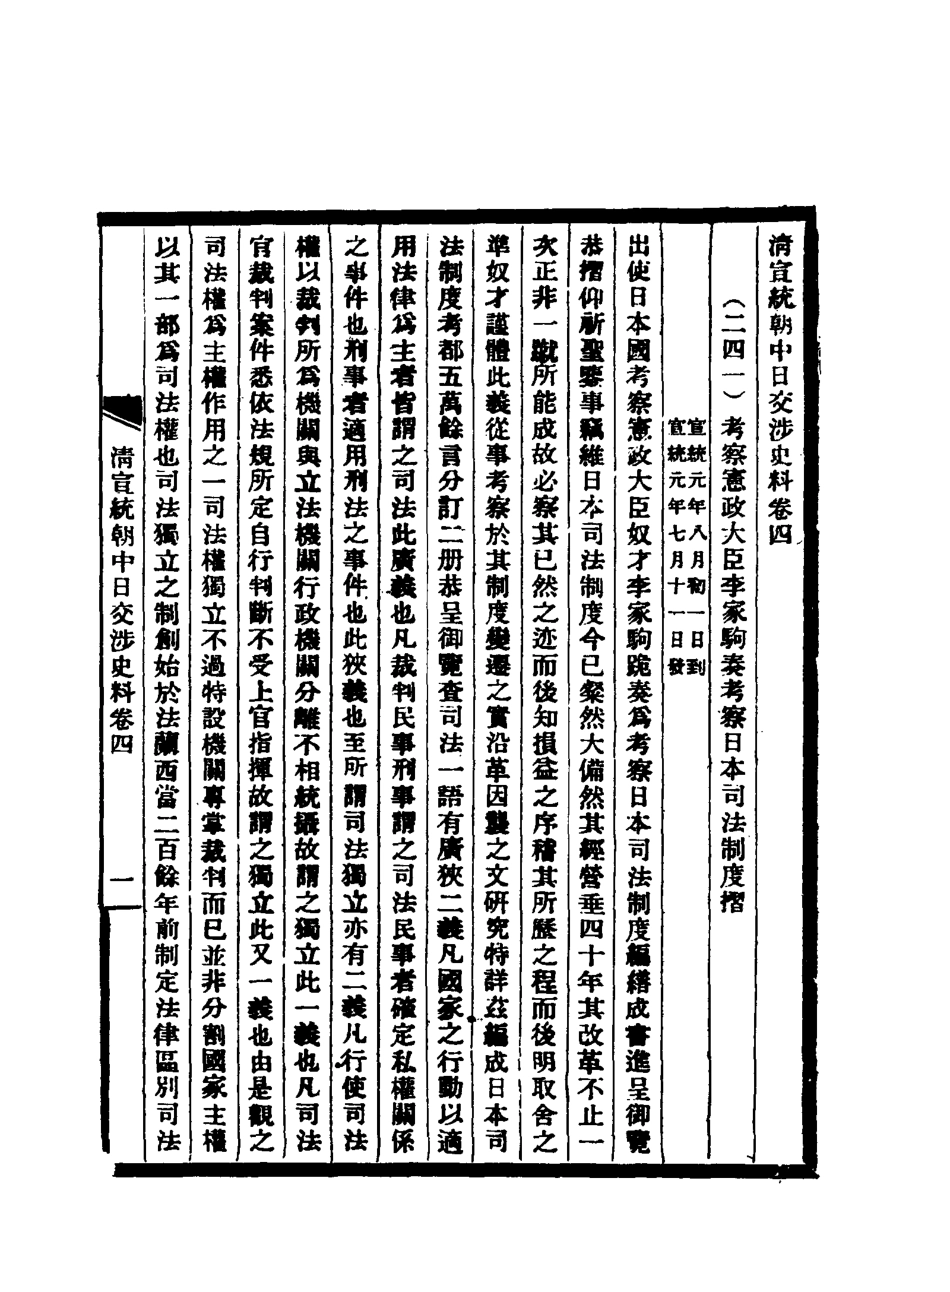 清宣統朝中日交涉史料卷四
（二四一）考察憲政大臣李家駒奏考察日本司法制度摺
宣統元年八月初一日到
宣統元年七月十一日發
出使日本國考察憲政大臣奴才李家駒跪奏爲考察日本司法制度編繕成書進呈御覽
恭摺仰祈聖鑒事竊維日本司法制度今已粲然大備然其經營垂四十年其改革不止一
次正非一蹴所能成故必察其已然之迹而後知損益之序稽其所歷之程而後明取舍之
準奴才謹體此義從事考察於其制度變遷之實沿革因襲之文研究特詳茲編成日本司
法制度考都五萬餘言分訂二册恭呈御覽查司法一語有廣狹二義凡國家之行動以適
用法律爲主者皆謂之司法此廣義也凡裁判民事刑事謂之司法民事者確定私權關係
之事件也刑事者適用刑法之事件也此狹義也至所謂司法獨立亦有二義凡行使司法
權以裁判所爲機關與立法機關行政機關分離不相統攝故謂之獨立此一義也凡司法
官裁判案件悉依法規所定自行判斷不受上官指揮故謂之獨立此又一義也由是觀之
司法權爲主權作用之一司法權獨立不過特設機關專掌裁判而已並非分割國家主權
以其一部爲司法權也司法獨立之制創始於法蘭西當二百餘年前制定法律區別司法
清宣統朝中日交涉史料卷四
一